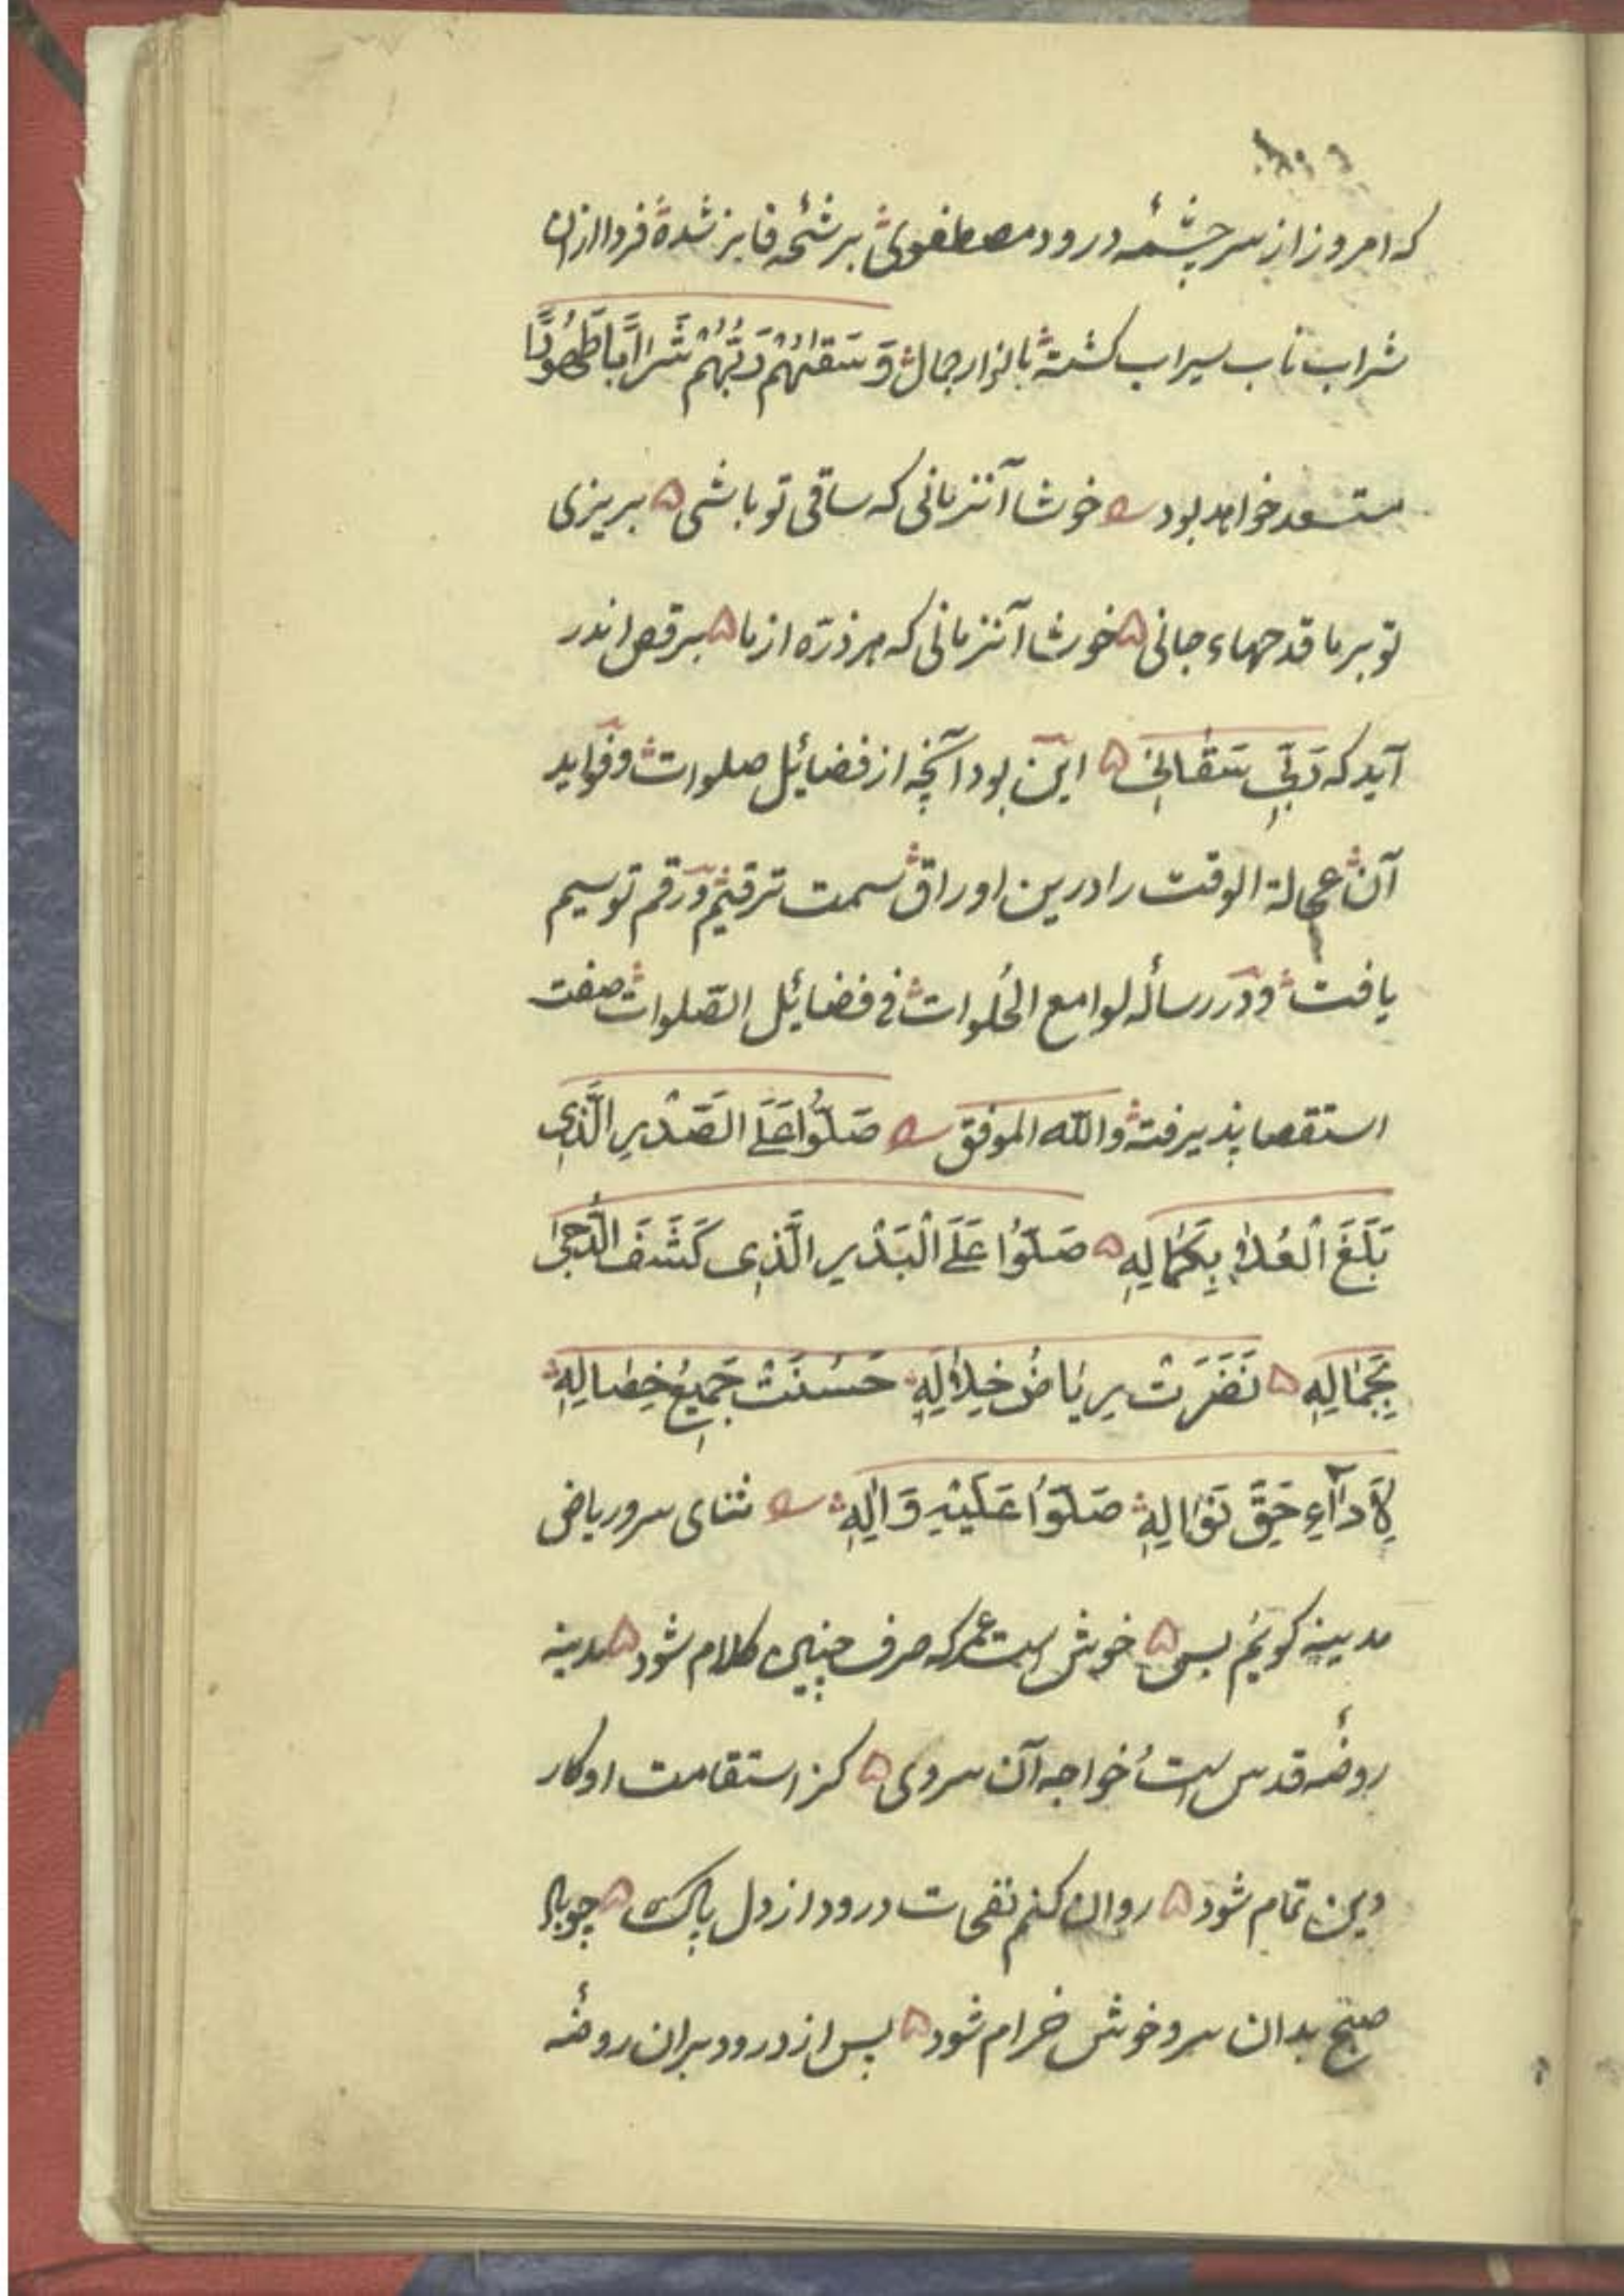 که امروز از سر چشمهٔ درود مصطفوی برشحه فایز شده فردا ازان
شراب ناب سیراب کشته بانوار جمال وَ سَقٰهُمْ رَبُّهُمْ شَرَابًا طَهُورًا
مستسعد خواهد بود خوشا آنزمانی که ساقی تو باشی ه بریزی
تو بر ما قدحهاء جانی ه خوشا آنزمانی که هر ذرّه از ما ه برقص اندر
آید که رَبِّی سَقَانِی ه این بود آنچه از فضائیل صلوات و فواید
آن عجالة الوقت را درین اوراق سمت ترقیم و رقم توسیم
یافت و در رسأله لوامع الحُلوات فی فضائیل الصّلوات صفت
استقصا پذیرفته والله الموفق صَلُّوا عَلَی الصَّدْرِ الَّذِی
بَلَغَ الْعُلاٰ بِکَمٰالِهِ ه صَلُّوا عَلَی الْبَدْرِ الَّذِی کَشَفَ الدُّجیٰ
بِجَمٰالِهِ ه نَضَرَتْ رِیٰاضُ خِلاٰلِهِ حَسُنَتْ جَمِیعُ خِصٰالِهِ
لِأَدٰآءِ حَقِّ نَوٰالِهِ صَلُّوا عَلَیْهِ وَاٰلِهِ ثنای سرو ریاض
مدینه کویم بس ه خوش است عمر که صرف چنین کلام شود ه مدینه
روضهٔ قدس است خواجه آن سروی ه کز استقامت او کار
دین تمام شود ه روان کنم نفحات درود از دل پاک ه چو باد
صبح بدان سرو خوش خرام شود ه پس از درود بران روضهٔ